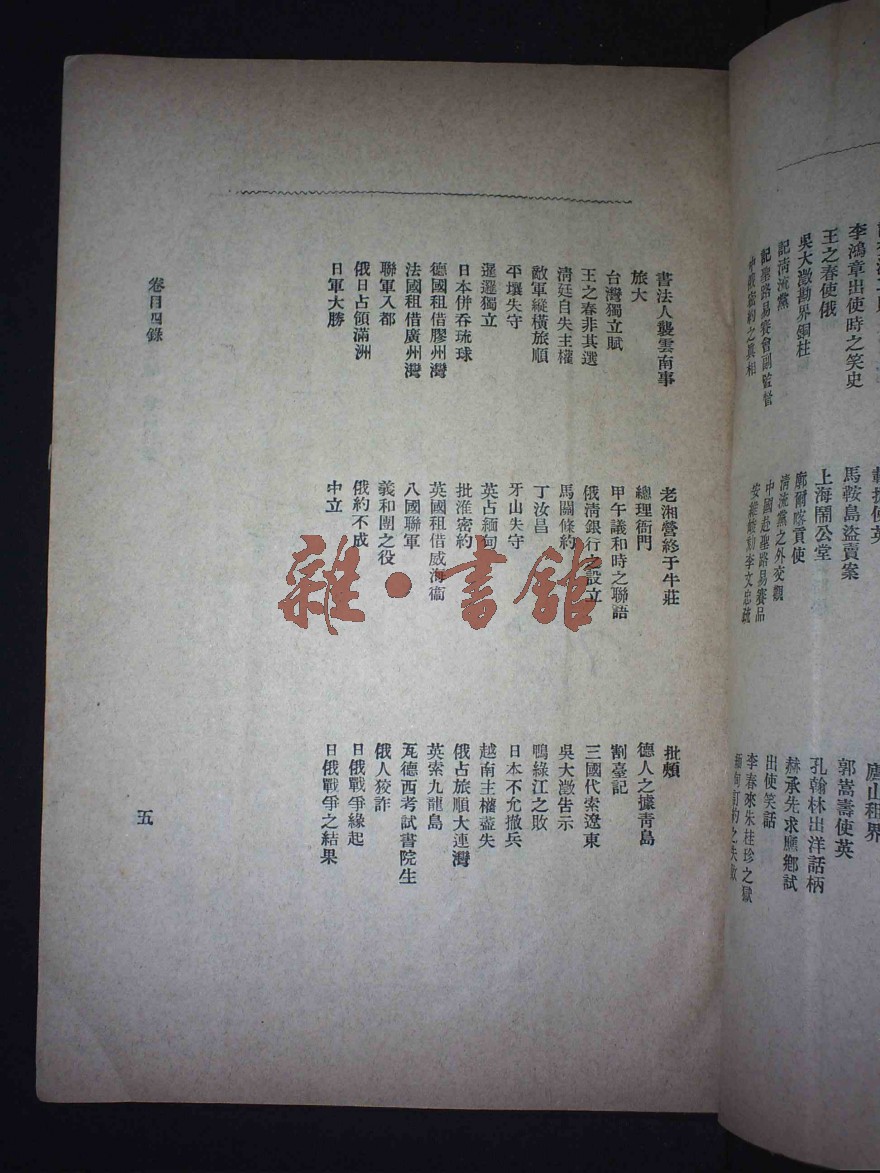 李鴻章出使時之笑史
馬鞍島盜賣案
郭嵩燾使英
王之春使俄
上海鬧公堂
孔翰林出洋話柄
吳大澂勘界銅柱
廓爾喀貢使
赫承先求應鄉試
記清流黨
清流黨之外交觀
出使笑話
記聖路易賽會副監督
中國赴聖路易賽品
李春來朱桂珍之獄
中俄密約之真相
安維峻劾李文忠疏
緬甸訂約之失敗
書法人襲雲南事
老湘營終于牛莊
批頰
旅大
總理衙門
德人之據青島
台灣獨立賦
甲午議和時之聯語
割臺記
王之春非其選
俄清銀行之設立
三國代索遼東
清廷自失主權
馬關條約
吳大澂告示
敵軍縱橫旅順
丁汝昌
鴨綠江之敗
平壤失守
牙山失守
日本不允撤兵
暹邏獨立
英占緬甸
越南主權盡失
日本併吞琉球
批淮密約
俄占旅順大連灣
德國租借膠州灣
英國租借威海衞
英索九龍島
法國租借廣州灣
八國聯軍
瓦德西考試書院生
聯軍入都
義和團之役
俄人狡詐
俄日占領滿洲
俄約不成
日俄戰爭緣起
日軍大勝
中立
日俄戰爭之結果
卷目四錄
五
雜·書館